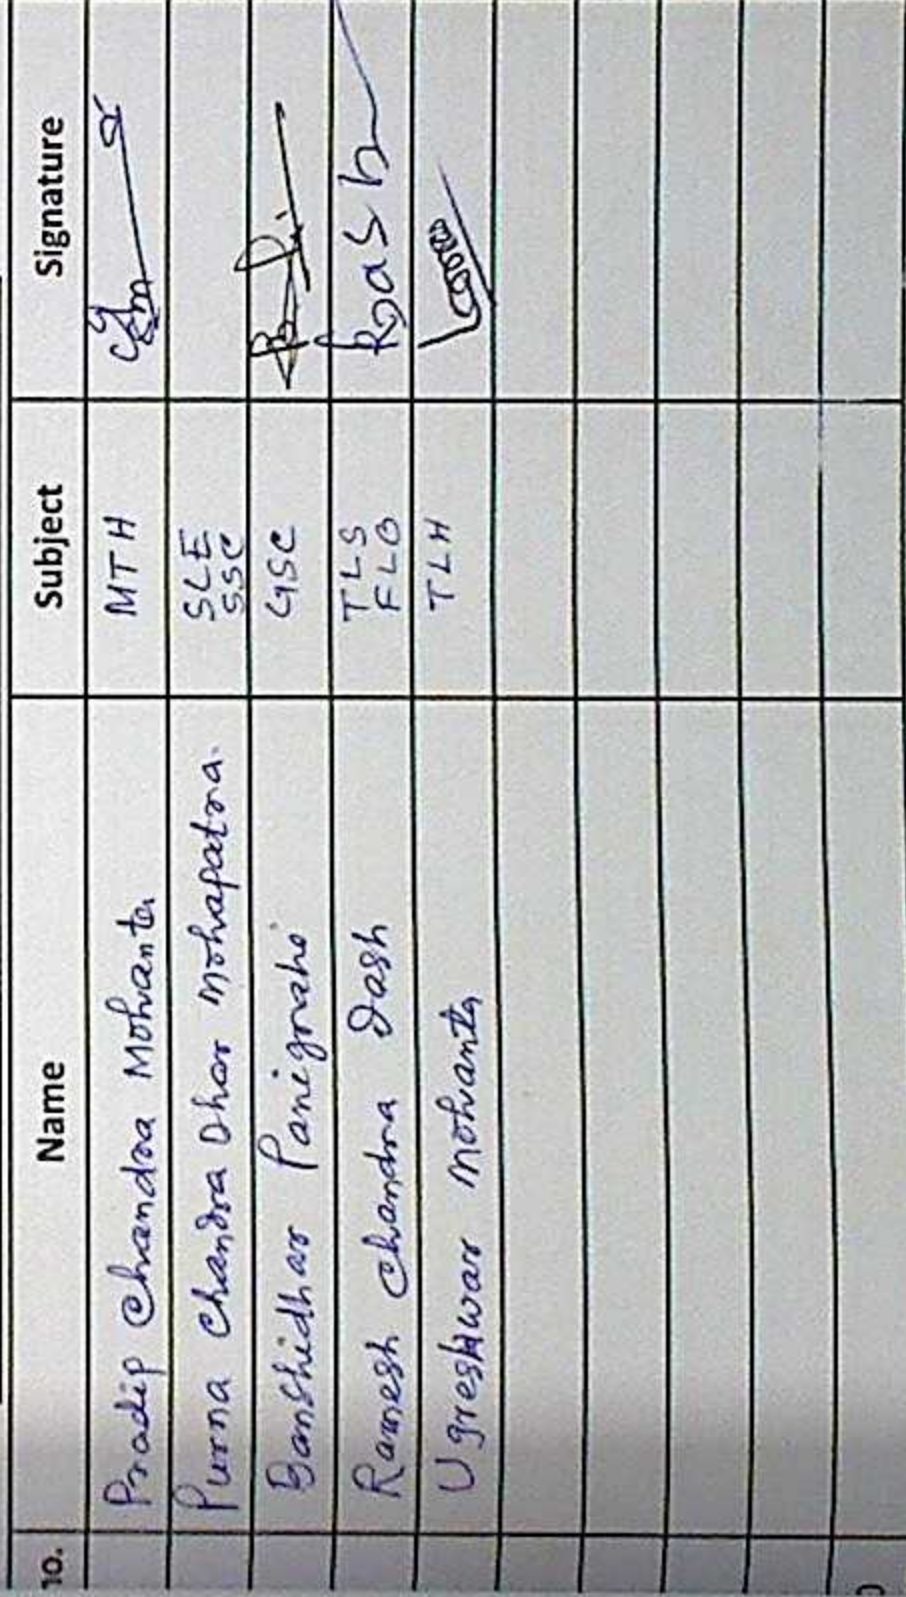 no. Name Subject Signature
Pradip Chandra Mohanta MTH
Purna Chandra Dhar Mohapatra. SLE SSC
Banshidhar Panigrahi GSC
Ramesh Chandra Dash TLS FLO Dash
Ugreshwar Mohanta TLH